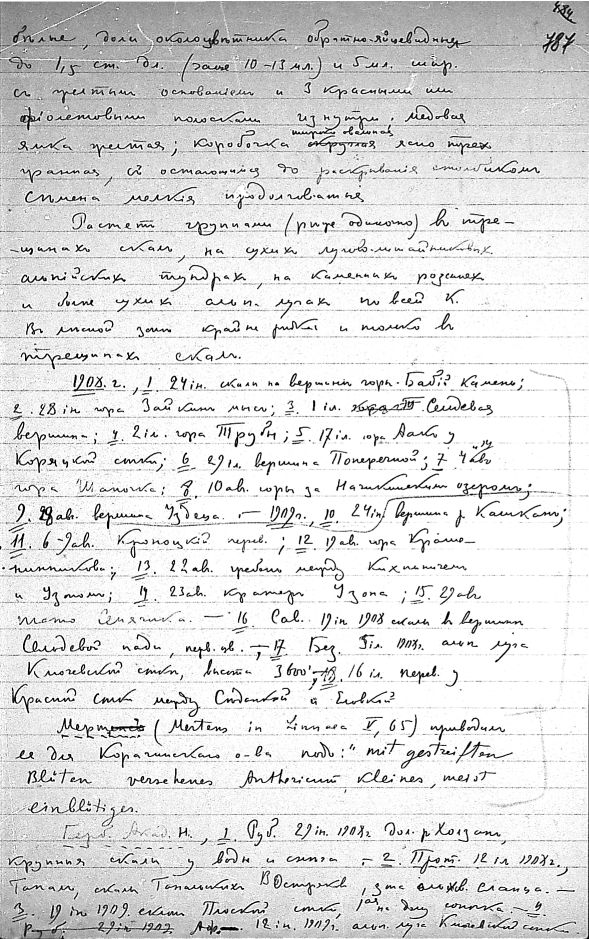 484
787
бѣлые, доли околоцвѣтника обратно-яйцевидныя
до 1,5 ст. дл. (чаще 10-13 мл.) и 5 мл. шир.
съ желтымъ основаніемъ и 3 красными или
фіолетовыми полосками изнутри, медовая
ямка желтая; коробочка широко овальная ясно трех
гранная, съ остающимся до раскрыванія столбикомъ
Сѣмена мелкія продолговатыя
Растетъ группами (рѣже одиноко) въ тре-
-щинахъ скалъ, на сухихъ лугово-лишайниковыхъ
альпійскихъ тундрахъ, на каменныхъ розсыпяхъ
и болѣе сухихъ альп. лугахъ по всей К.
Въ лѣсной зонѣ крайне рѣдка и только въ
трещинахъ скалъ.
1908. г., 1. 24 іюн. скалы на вершинѣ горы Бабій Камень;
2. 28 ін гора Зайкинъ мысъ; 3. 1 іл. Сельдевая
вершина; 4. 2 іл. гора Трубы; 5. 17 іл. гора у
Коряцкой сопки; 6. 29 іл. вершина Поперечной; 7. 4 ав
гора Шапочка; 8. 10 ав. горы за Начикинскимъ озеромъ;
9. ав. вершина — 1909 г., 10. 24 ін. вершина р. Кашканъ;
11. 6-9 ав. Кроноцкій перев.; 12. 19 ав. гора Краше-
нинникова; 13. 22 ав. гребень между Кихпинычемъ
и Узономъ; 14. 23 ав. Кратеръ Узона; 15. 29 ав
плато Семячика. — 16. Сав. 19 ін 1908 скалы въ вершинѣ
Сельдевой пади, перв. цв. — 17. Без. іл. 1908 г. альп. луга
Ключевской сопки, высота 3600'; 18. 16 іл. перев. у
Красной сопки между Сѣданкой и Еловкой
Мертенсъ (Mertens in Linnaea V, 65) приводитъ
ее для Карагинскаго о-ва подъ: "mit gestreiften
Blüten versehenes Anthericum, kleines, meist
einblütiges.
Герб. Акад. Н., 1. Руб. 29 ін. 1908 г. дол. р. Холзанъ,
крупныя скалы у воды и снѣга. — 2. Прот. 12 іл 1908 г.,
скалы — 
3. 19 ін 1909. склоны Плоской сопки, на дну сопочка. — 4.
Руб. 12 ін. 1909 г. альп. луга Ключевской сопки